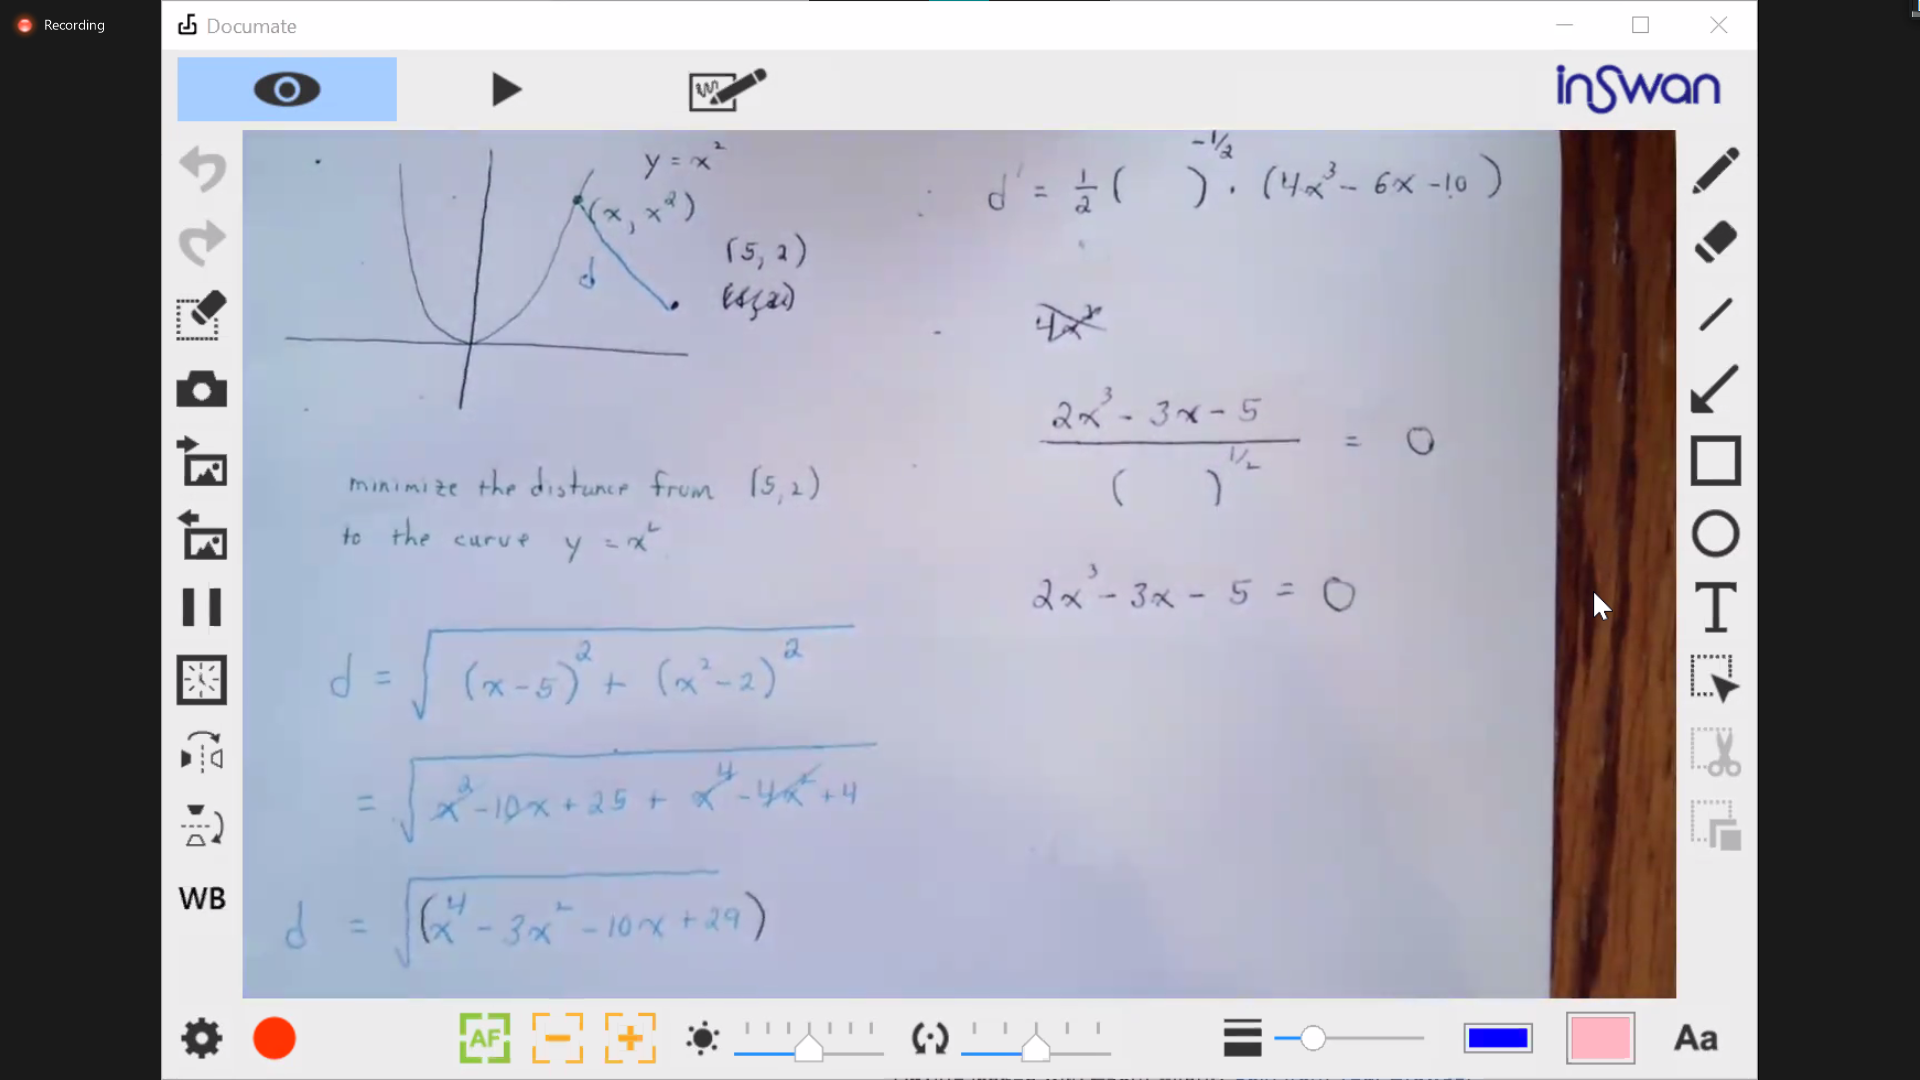 Recording
Documate
inSwan
y = x²
(x, x²)
(5, 2)
d
minimize the distance from (5,2)
to the curve y = x²
d = √((x-5)² + (x²-2)²)
= √(x²-10x+25 + x⁴-4x²+4)
d = √(x⁴-3x²-10x+29)
d' = 1/2 ( )^-1/2 · (4x³ - 6x -10)
4x³
2x³ - 3x - 5 / ( )^1/2 = 0
2x³ - 3x - 5 = 0
T
WB
AF
Aa